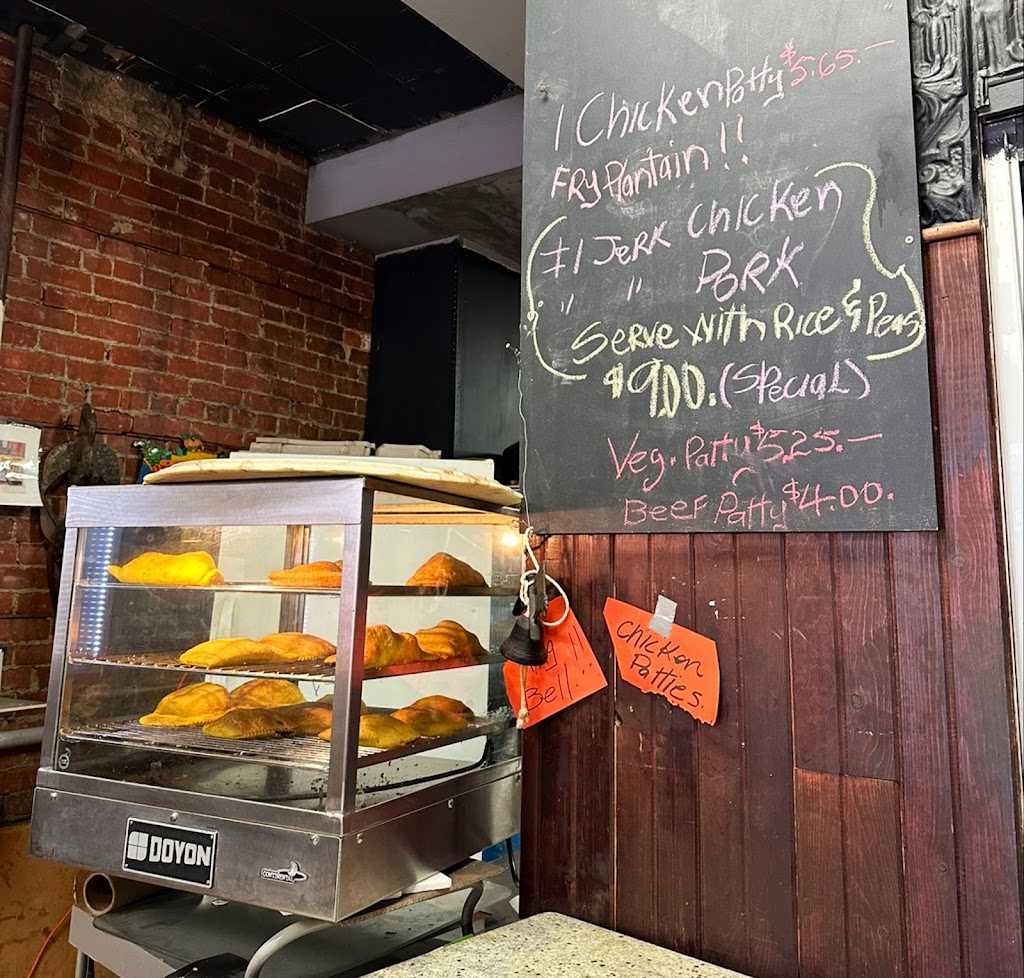 1 Chicken Patty $5.65.—
FRY Plantain!!
#1 JERK Chicken
" " PORK
Serve with Rice & Peas
$9.00. (Special)
Veg. Patty $5.25.—
Beef Patty $4.00.
Bell!!
Chicken
Patties.
DOYON
CONTINENTAL